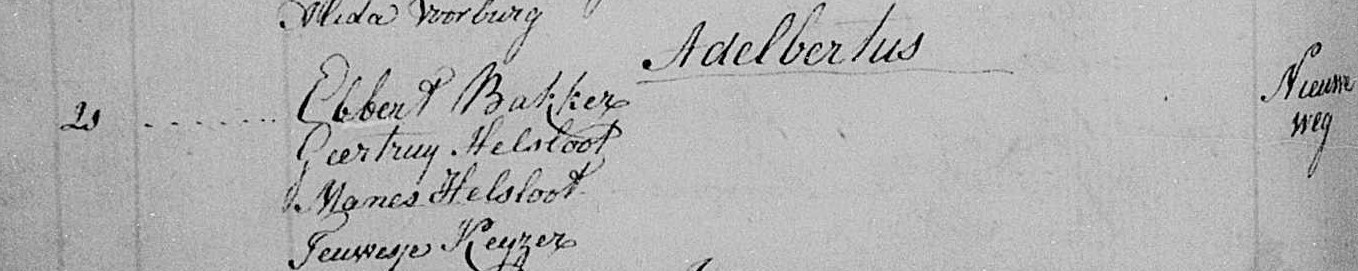 Alida Voorburg
Adelbertus
21 Ebbert Bakker Nieuwe
Geertruy Helsloot weg
Manes Helsloot
Teuwesje Keyzer